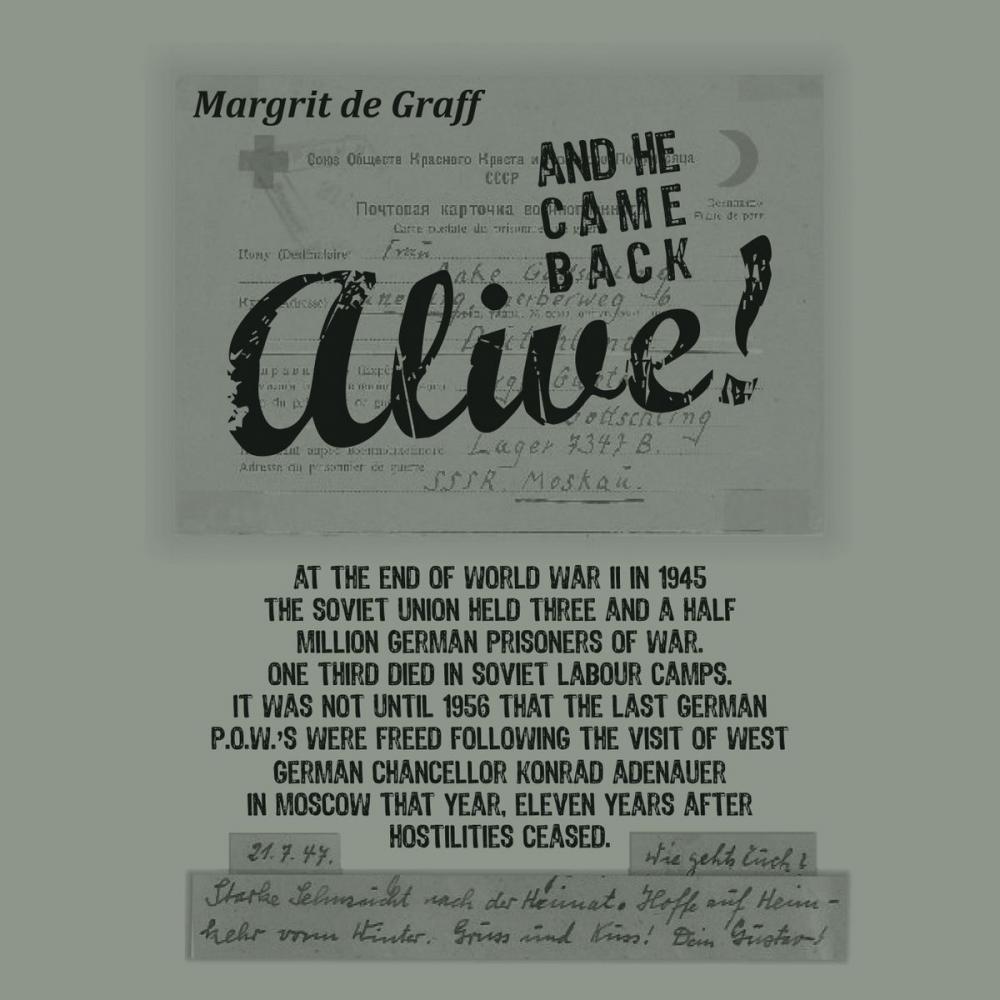 Margrit de Graff
AND HE
CAME
BACK
Alive!
Союз Обществ Красного Креста и
СССР
Почтовая карточка
Carte postale du prisonnier de guerre
Кому (Destinalaire) Frau
Gottschling
erberweg 16
Deutschland
Gottschling
Lager 7347 B.
Adresse du prisonnier de guerre
SSSR. Moskau.
AT THE END OF WORLD WAR II IN 1945
THE SOVIET UNION HELD THREE AND A HALF
MILLION GERMAN PRISONERS OF WAR.
ONE THIRD DIED IN SOVIET LABOUR CAMPS.
IT WAS NOT UNTIL 1956 THAT THE LAST GERMAN
P.O.W.'S WERE FREED FOLLOWING THE VISIT OF WEST
GERMAN CHANCELLOR KONRAD ADENAUER
IN MOSCOW THAT YEAR, ELEVEN YEARS AFTER
HOSTILITIES CEASED.
21.7.47. Wie gehts Euch?
Starke Sehnsucht nach der Heimat. Hoffe auf Heim-
kehr vorm Winter. Gruss und Kuss! Dein Gustav!